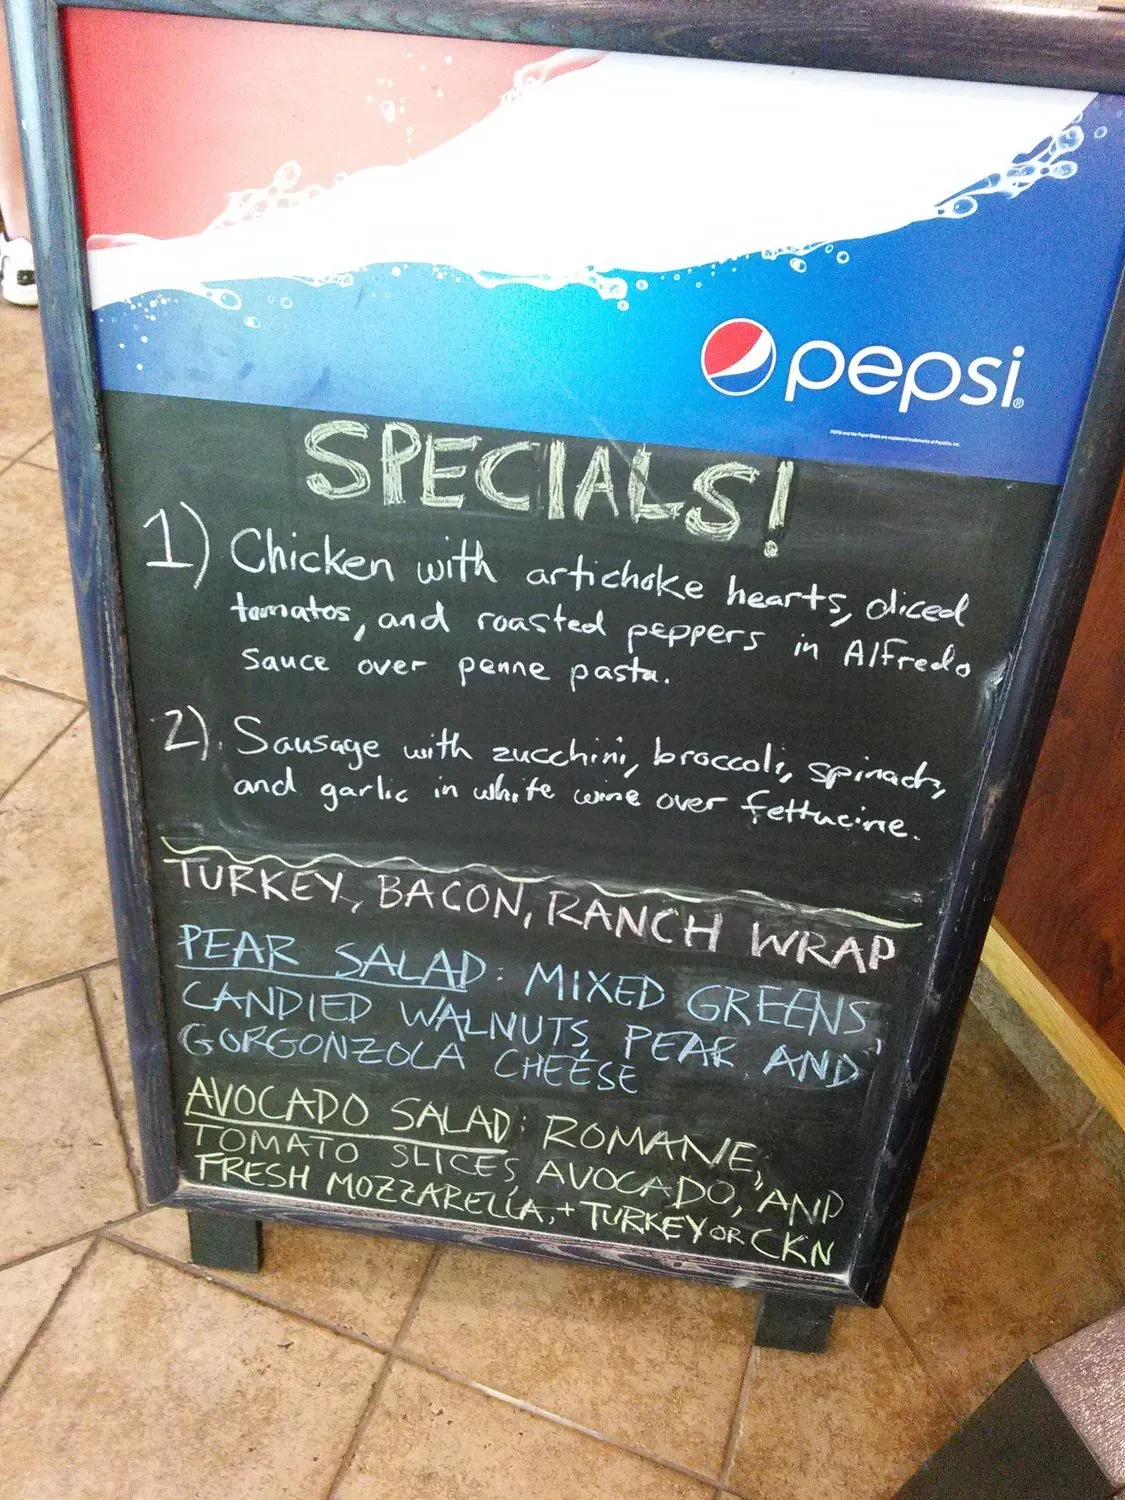 pepsi®
SPECIALS!
1) Chicken with artichoke hearts, diced
tomatos, and roasted peppers in Alfredo
sauce over penne pasta.
2) Sausage with zucchini, broccoli, spinach,
and garlic in white wine over fettucine.
TURKEY, BACON, RANCH WRAP
PEAR SALAD: MIXED GREENS
CANDIED WALNUTS, PEAR AND
GORGONZOLA CHEESE
AVOCADO SALAD: ROMANE,
TOMATO SLICES, AVOCADO, AND
FRESH MOZZARELLA, + TURKEY OR CKN